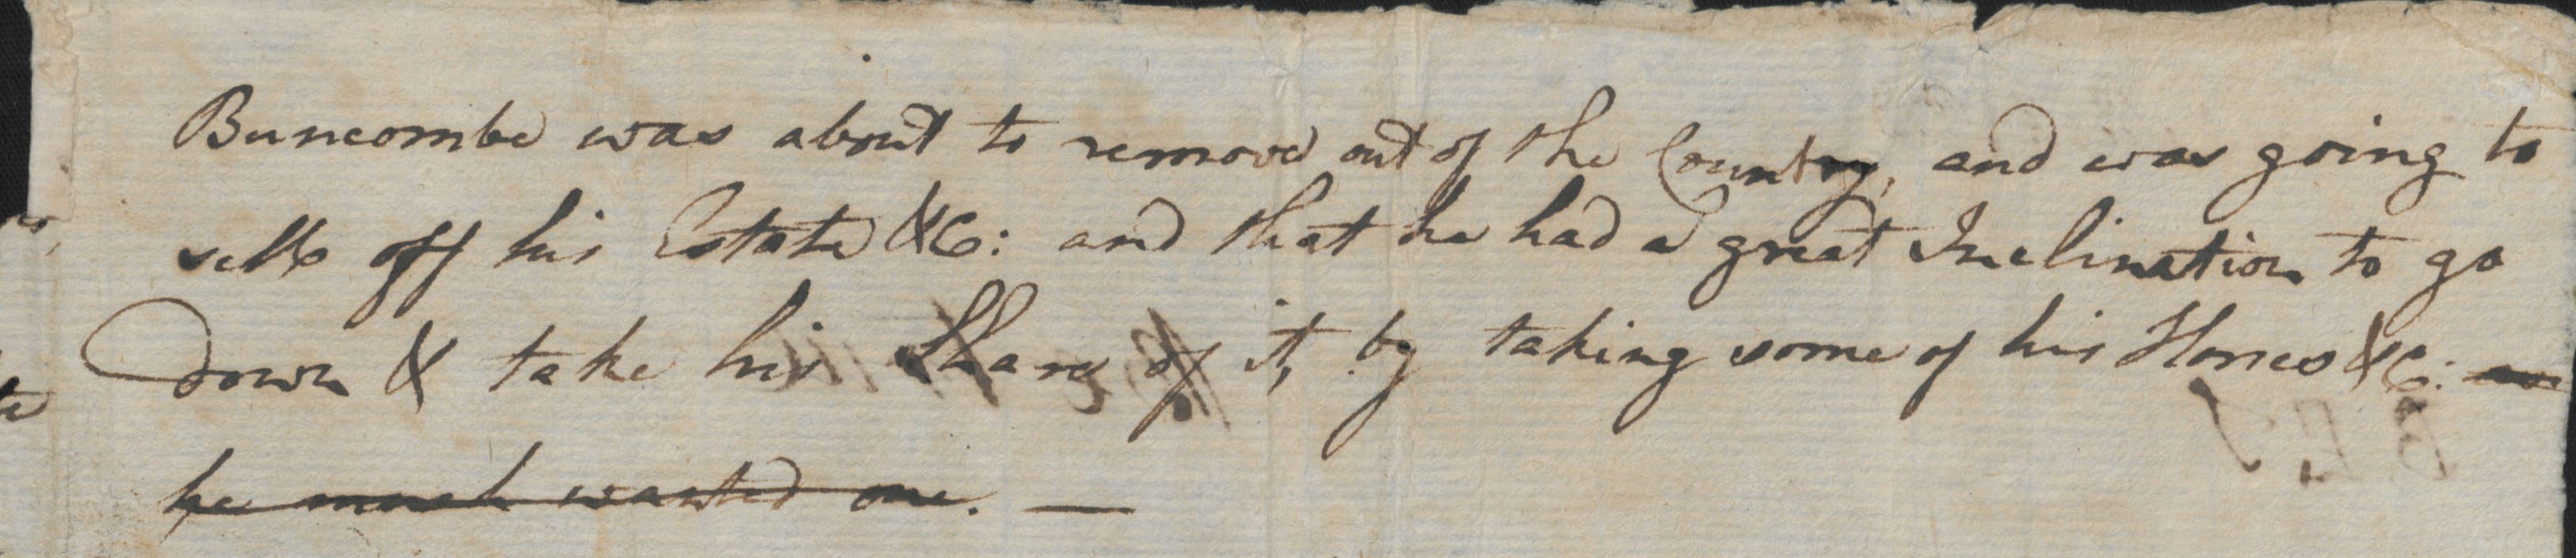 Buncombe was about to remove out of the Country, and was going to
sell off his Estate &C: and that he had a great Inclination to go
down & take his Share of it, by taking some of his Horses &C: as
he much wanted one. —